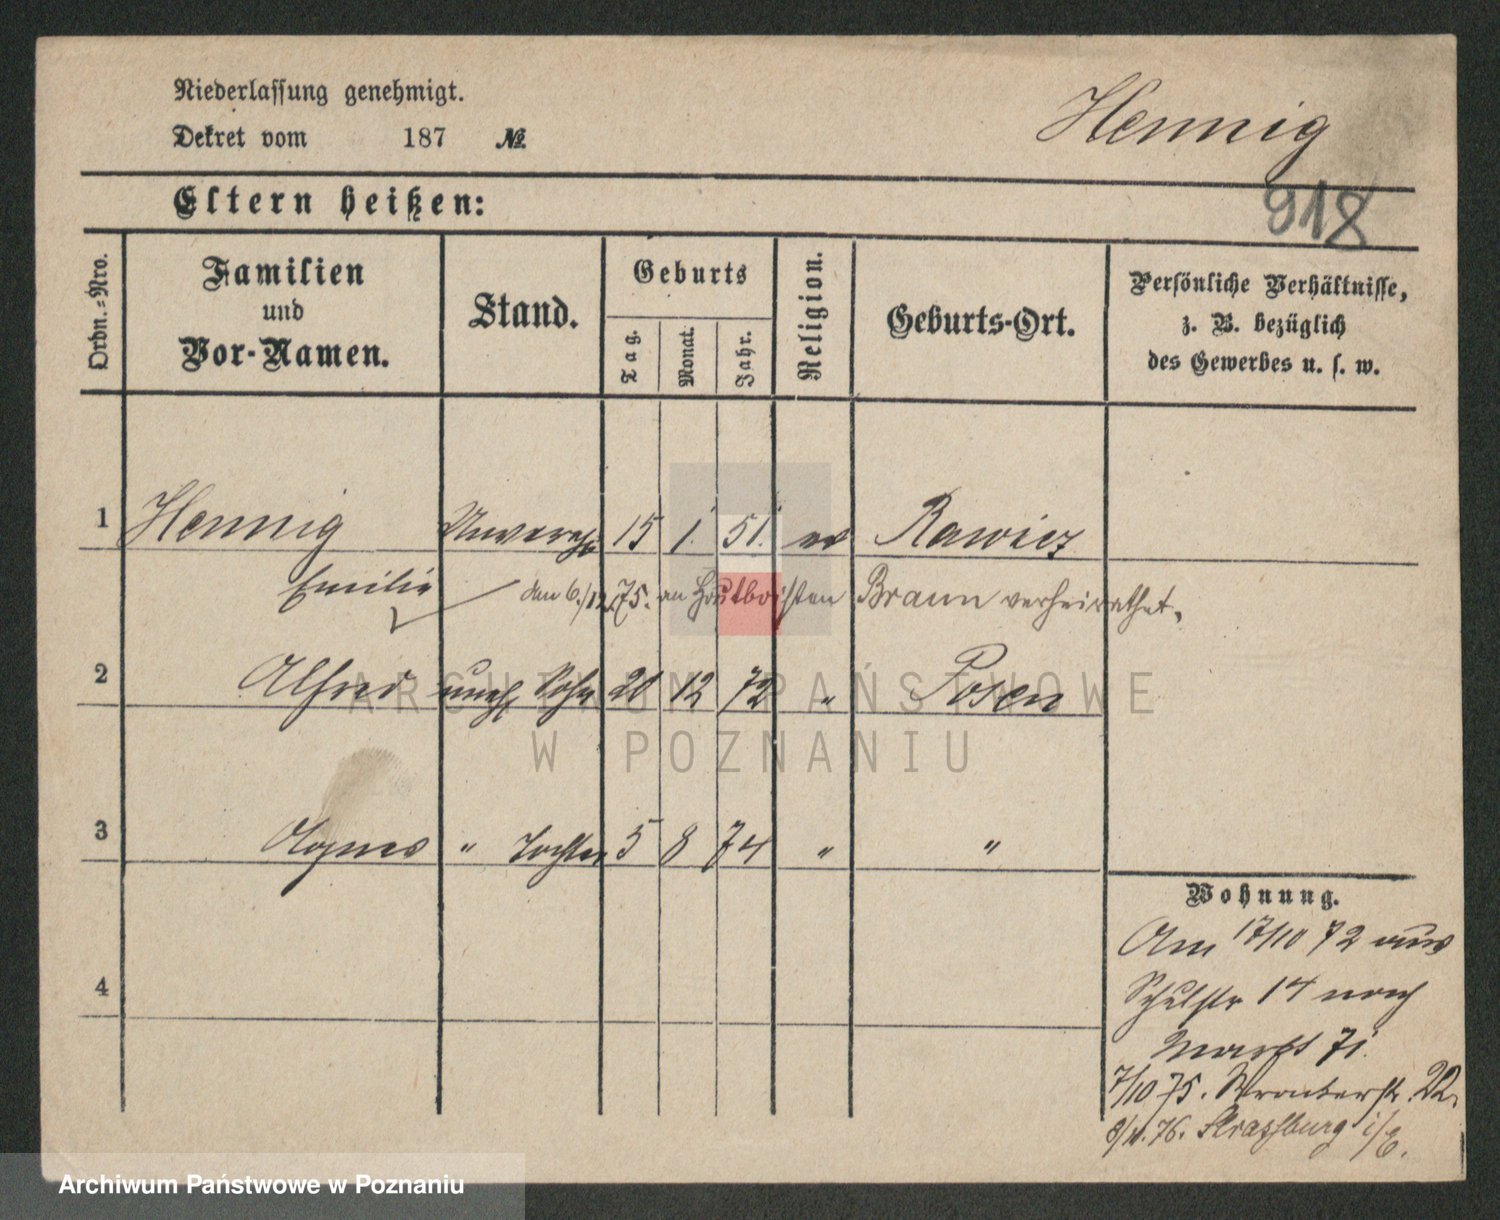 Niederlassung genehmigt.
Dekret vom 187 №
Hennig
918
Eltern heißen:
Ordn.-Nro.
Familien
und
Vor-Namen.
Stand.
Geburts
Tag.
Monat.
Jahr.
Religion.
Geburts-Ort.
Persönliche Verhältnisse,
z. B. bezüglich
des Gewerbes u. s. w.
1 Hennig 15 1. 51. ev Rawicz
Emilie den 6./12.75. an Hautboisten Braun verheirathet.
2 Alfred unehl Sohn 20 12 72 " Posen
3 Agnes " Tochter 5 8 74 " "
4
Wohnung.
Am 17/10 72 aus
Schulstr 14 nach
Markt 71.
7/10 75. Wronkerstr. 22.
8/11. 76. Strassburg i/E.
ARCHIWUM PAŃSTWOWE
W POZNANIU
Archiwum Państwowe w Poznaniu